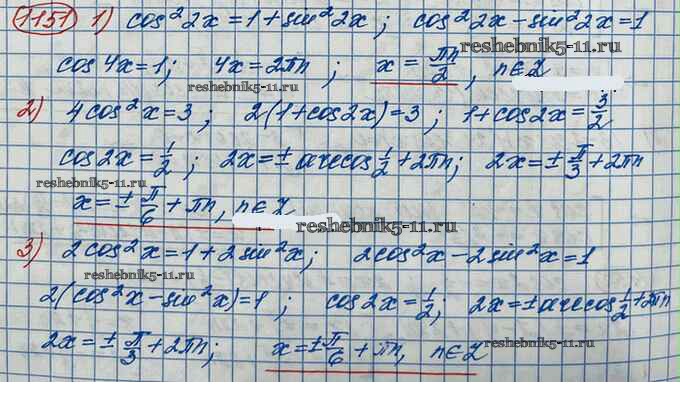 1151 1) cos²2x = 1 + sin²2x ; cos²2x − sin²2x = 1
reshebnik5-11.ru
cos4x = 1 ; 4x = 2πn ; x = πn/2 , n∈Z
reshebnik5-11.ru
2) 4cos²x = 3 ; 2(1+cos2x) = 3 ; 1+cos2x = 3/2
cos2x = 1/2 ; 2x = ± arccos 1/2 + 2πn ; 2x = ± π/3 + 2πn
reshebnik5-11.ru
x = ± π/6 + πn, n∈Z
reshebnik5-11.ru
3) 2cos²x = 1 + 2sin²x ; 2cos²x − 2sin²x = 1
reshebnik5-11.ru
2(cos²x − sin²x) = 1 ; cos2x = 1/2 ; 2x = ± arccos 1/2 + 2πn
2x = ± π/3 + 2πn ; x = ± π/6 + πn, n∈Z
reshebnik5-11.ru